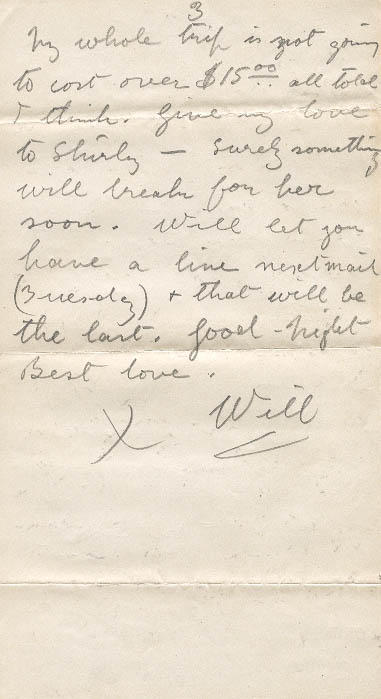 3
My whole trip is not going
to cost over $15.00 all told
I think. Give my love
to Shirly — Surely something
will break for her
soon. Will let you
have a line next mail
(Tuesday) + that will be
the last. Good-Night
Best love.
X Will